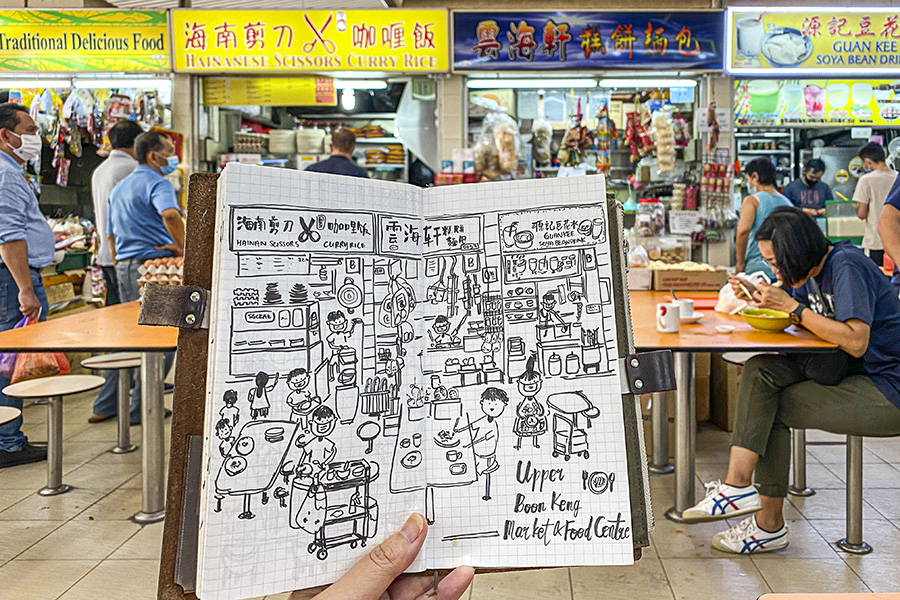 Traditional Delicious Food
海南剪刀 咖喱飯
HAINANESE SCISSORS CURRY RICE
雲海軒糕餅麵包
源記豆花
GUAN KEE
SOYA BEAN DRIN
海南剪刀 咖喱飯
HAINAN SCISSORS CURRY RICE
雲海軒
源記豆花水
GUANKEE
SOYA BEAN
B
B
B
Upper
Boon Keng
Market & Food Centre